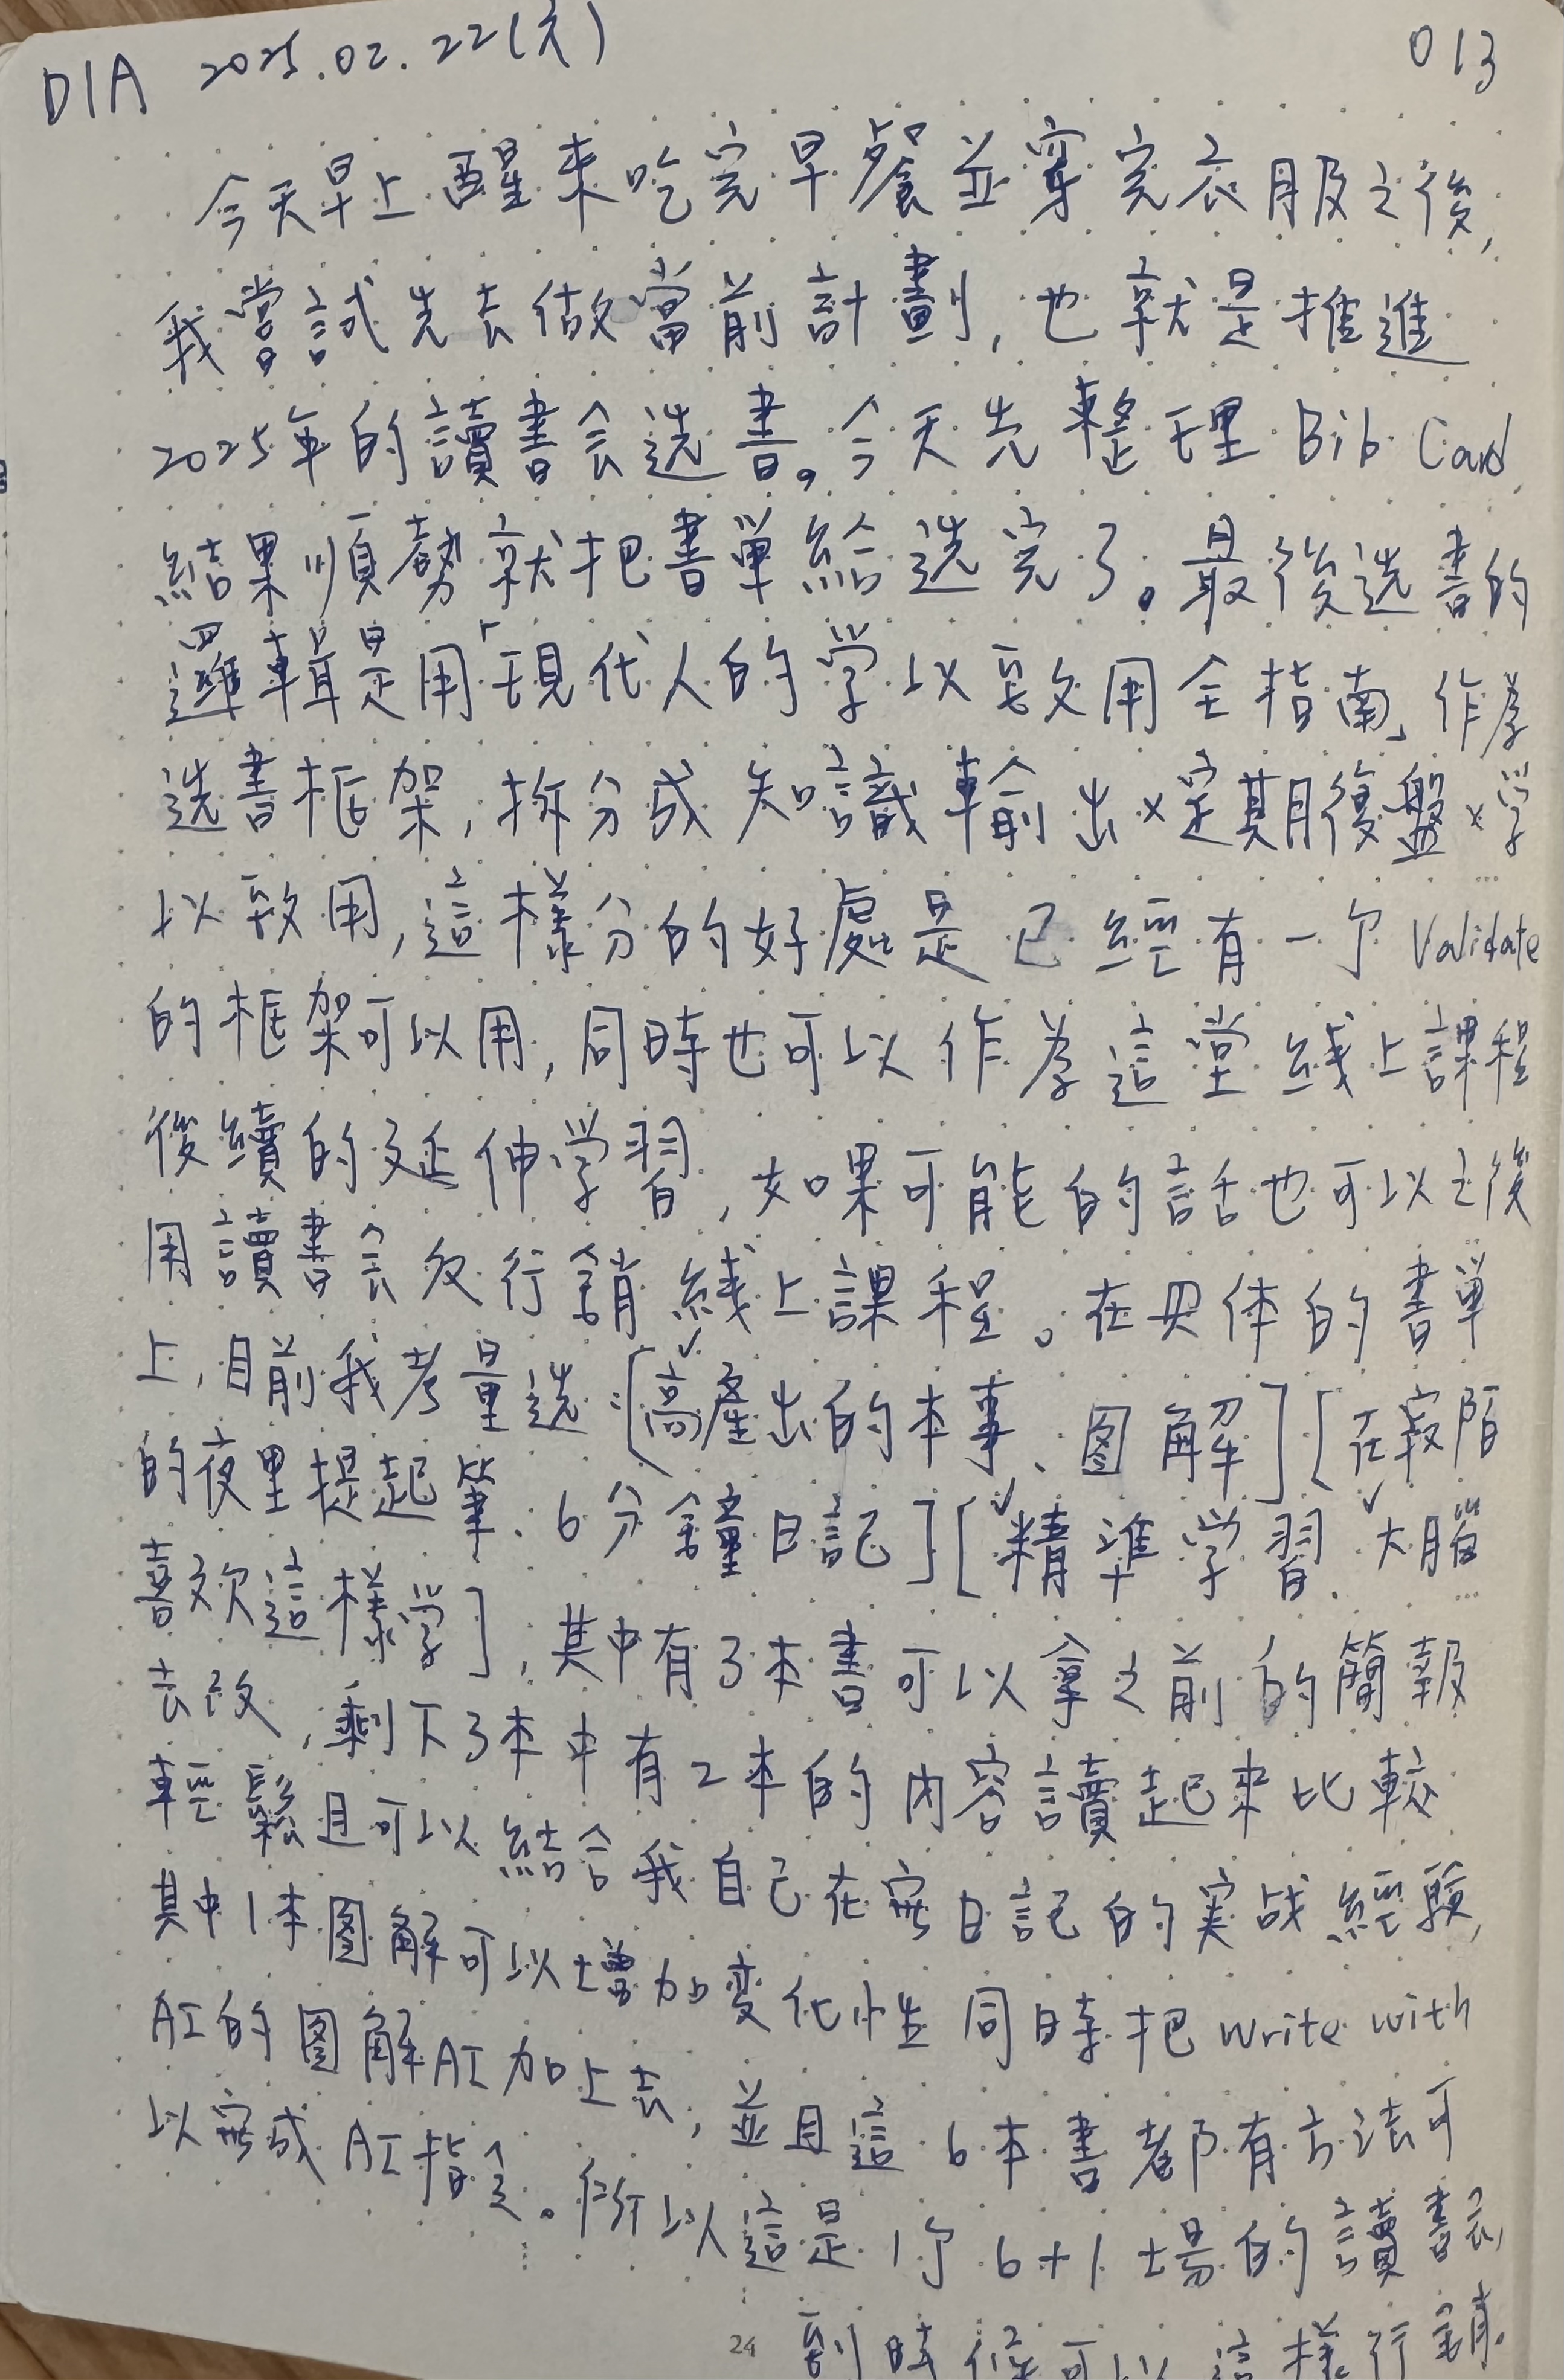 DIA 2025.02.22(六) 013
今天早上醒來吃完早餐並穿完衣服之後,
我嘗試先去做當前計劃,也就是推進
2025年的讀書会选書。今天先整理 Bib Card,
結果順勢就把書單給选完了。最後选書的
邏輯是用「現代人的学以致用全指南」作為
选書框架,拆分成知識輸出×定期復盤×学
以致用,這樣分的好處是已經有一个Validate
的框架可以用,同時也可以作為這堂綫上課程
後續的延伸学習,如果可能的話也可以之後
用讀書会反行銷綫上課程。在具体的書單
上,目前我考量选:[高產出的本事、图解][在寂陌
的夜里提起筆、6分鐘日記][精準学習、大腦
喜欢這樣学],其中有3本書可以拿之前的簡報
去改,剩下3本中有2本的内容讀起來比較
輕鬆且可以結合我自己在寫日記的実战經驗,
其中1本图解可以增加变化性同時把write with
AI的图解AI加上去,並且這6本書都有方法可
以寫成AI指令。所以這是1个6+1場的讀書会,
到時候可以這樣行銷。
24